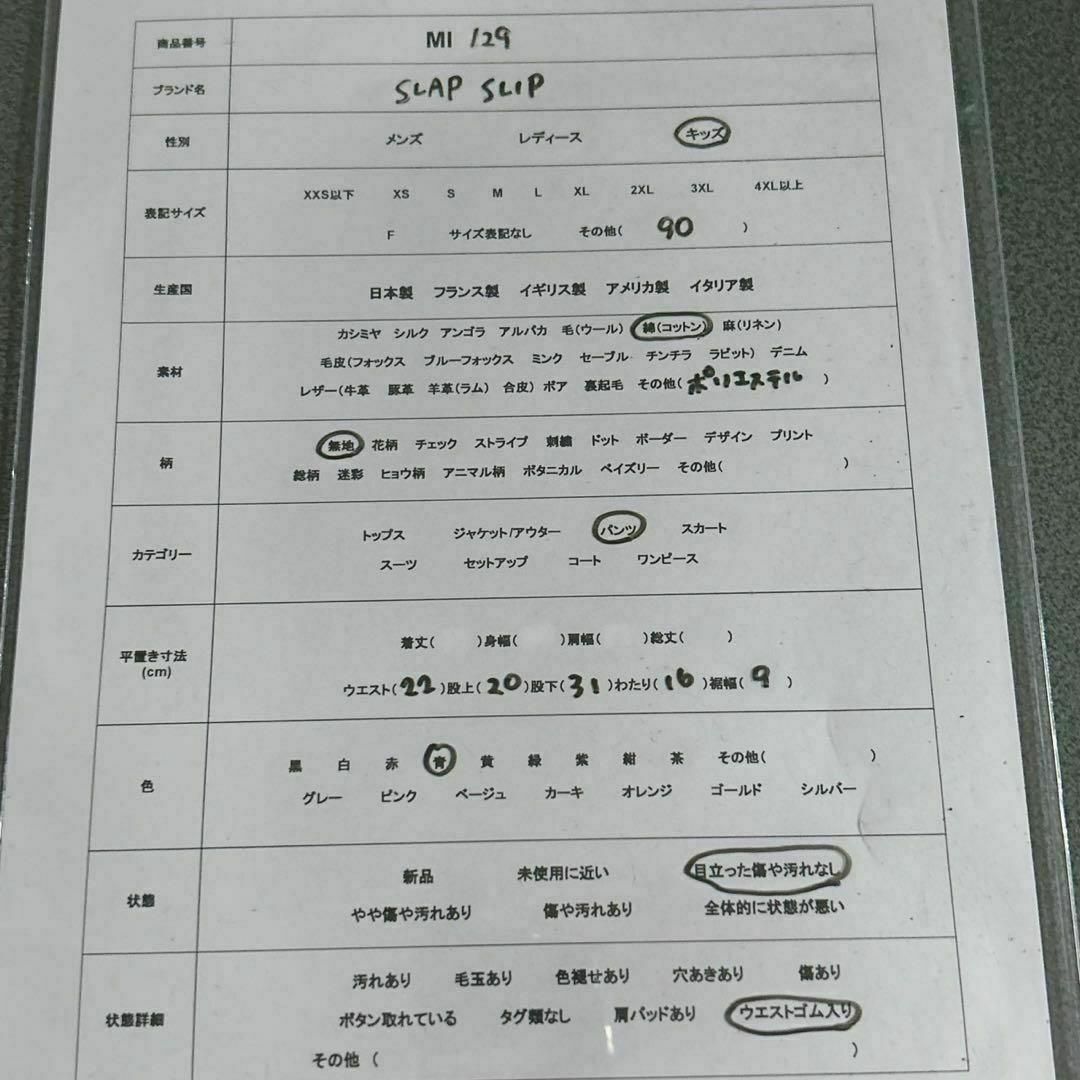 商品番号 MI 129
ブランド名 SLAP SLIP
性別 メンズ レディース キッズ
XXS以下 XS S M L XL 2XL 3XL 4XL以上
表記サイズ
F サイズ表記なし その他( 90 )
生産国 日本製 フランス製 イギリス製 アメリカ製 イタリア製
カシミヤ シルク アンゴラ アルパカ 毛(ウール) 綿(コットン) 麻(リネン)
素材
毛皮(フォックス ブルーフォックス ミンク セーブル チンチラ ラビット) デニム
レザー(牛革 豚革 羊革(ラム) 合皮) ボア 裏起毛 その他( ポリエステル )
柄
無地 花柄 チェック ストライプ 刺繍 ドット ボーダー デザイン プリント
総柄 迷彩 ヒョウ柄 アニマル柄 ボタニカル ペイズリー その他( )
カテゴリー
トップス ジャケット/アウター パンツ スカート
スーツ セットアップ コート ワンピース
平置き寸法
(cm)
着丈( )身幅( )肩幅( )総丈( )
ウエスト(22)股上(20)股下(31)わたり(16)裾幅(9)
色
黒 白 赤 青 黄 緑 紫 紺 茶 その他( )
グレー ピンク ベージュ カーキ オレンジ ゴールド シルバー
状態
新品 未使用に近い 目立った傷や汚れなし
やや傷や汚れあり 傷や汚れあり 全体的に状態が悪い
状態詳細
汚れあり 毛玉あり 色褪せあり 穴あきあり 傷あり
ボタン取れている タグ類なし 肩パッドあり ウエストゴム入り
その他 ( )